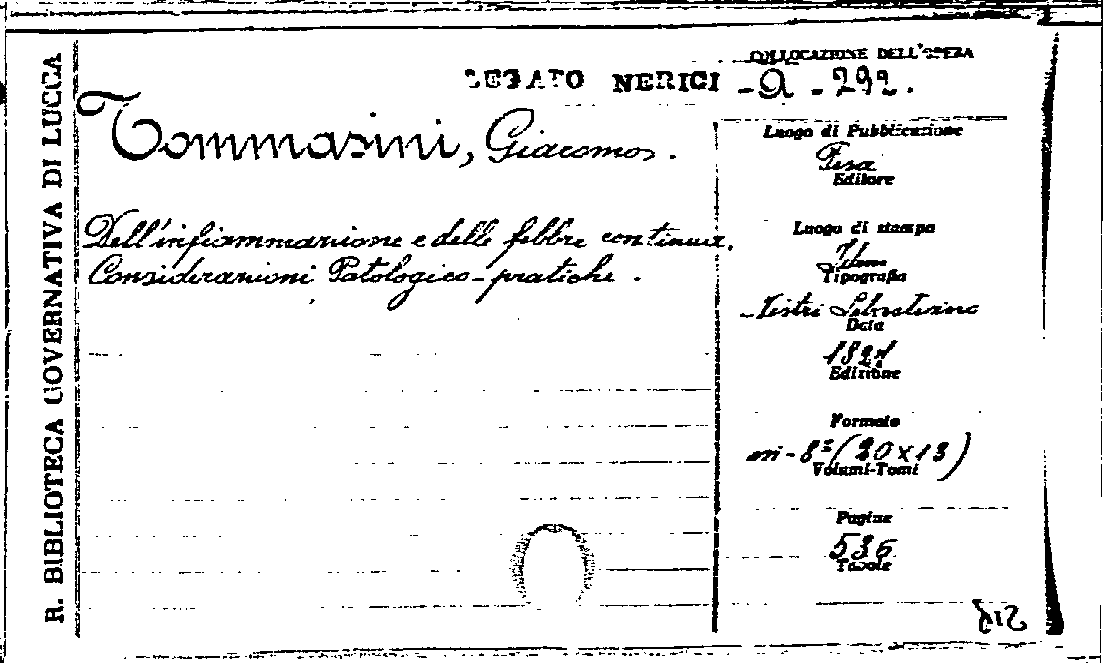 R. BIBLIOTECA GOVERNATIVA DI LUCCA
COLLOCAZIONE DELL'OPERA
LEGATO NERICI - A - 292.
Tommasini, Giacomo.
Luogo di Pubblicazione
Pisa
Editore
Dell'infiammazione e delle febbre continua.
Considerazioni Patologico-pratiche.
Luogo di stampa
Tipografia
Data
1821
Edizione
Formato
in-8º (20x13)
Volumi-Tomi
Pagine
536
Tavole